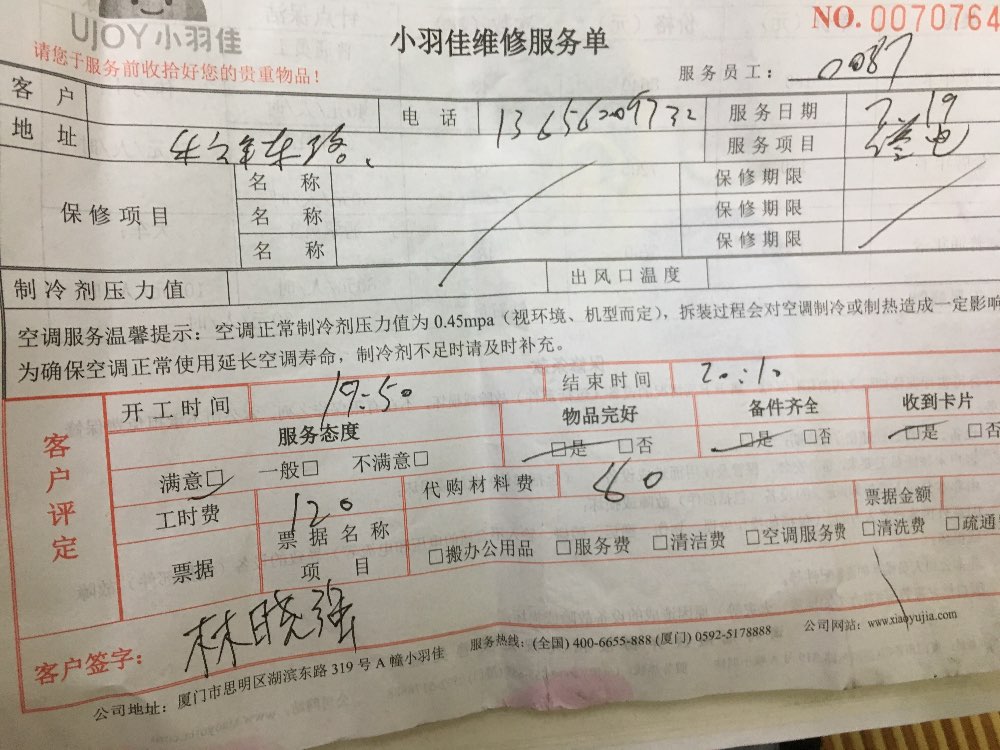 UJOY小羽佳
小羽佳维修服务单
NO. 0070764
请您于服务前收拾好您的贵重物品！
服务员工： 0087
客 户 电 话 13656009732 服务日期 7.19
地 址 东路、 服务项目 修电
保修项目 名 称 保修期限
名 称 保修期限
名 称 保修期限
制冷剂压力值 出风口温度
空调服务温馨提示：空调正常制冷剂压力值为 0.45mpa（视环境、机型而定），拆装过程会对空调制冷或制热造成一定影响
为确保空调正常使用延长空调寿命，制冷剂不足时请及时补充。
客户评定
开工时间 19:50 结束时间 20:10
服务态度 物品完好 备件齐全 收到卡片
满意□ 一般□ 不满意□ □是 □否 □是 □否 □是 □否
工时费 120 代购材料费 60 票据金额
票据 票据名称 □搬办公用品 □服务费 □清洁费 □空调服务费 □清洗费 □疏通
项 目
客户签字： 林晓强
公司地址：厦门市思明区湖滨东路 319 号 A 幢小羽佳 服务热线：(全国) 400-6655-888 (厦门) 0592-5178888 公司网站：www.xiaoyujia.com